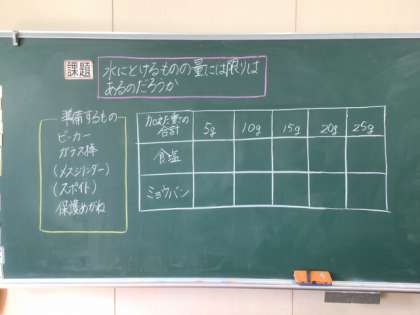 課題
水にとけるものの量には限りは
あるのだろうか
準備するもの
ビーカー
ガラス棒
(メスシリンダー)
(スポイト)
保護めがね
加えた量の
合計
5g 10g 15g 20g 25g
食塩
ミョウバン